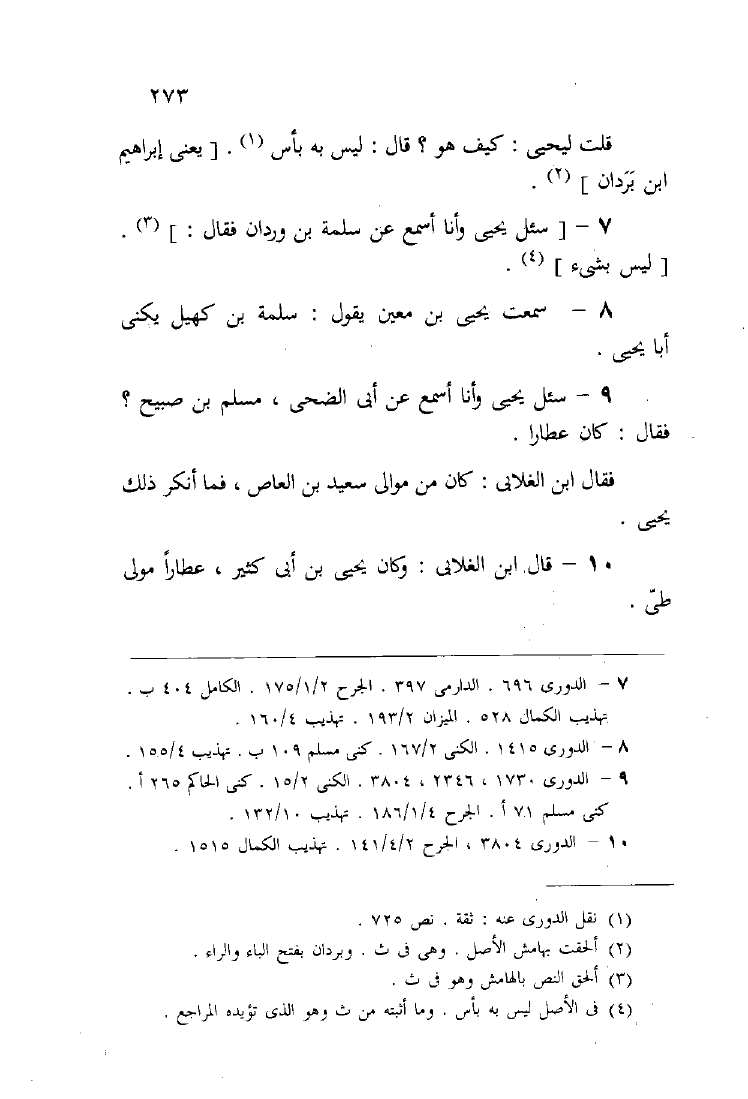 ٢٧٣
قلت ليحيى : كيف هو ؟ قال : ليس به بأس (١) . [ يعنى إبراهيم
ابن بَرَدان ] (٢) .
٧ – [ سئل يحيى وأنا أسمع عن سلمة بن وردان فقال : ] (٣) .
[ ليس بشىء ] (٤) .
٨ – سمعت يحيى بن معين يقول : سلمة بن كهيل يكنى
أبا يحيى .
٩ – سئل يحيى وأنا أسمع عن أبى الضحى ، مسلم بن صبيح ؟
فقال : كان عطارا .
فقال ابن الغلابى : كان من موالى سعيد بن العاص ، فما أنكر ذلك
يحيى .
١٠ – قال ابن الغلابى : وكان يحيى بن أبى كثير ، عطاراً مولى
طىّ .
٧ – الدورى ٦٩٦ . الدارمى ٣٩٧ . الجرح ١٧٥/١/٢ . الكامل ٤٠٤ ب .
تهذيب الكمال ٥٢٨ . الميزان ١٩٣/٢ . تهذيب ١٦٠/٤ .
٨ – الدورى ١٤١٥ . الكنى ١٦٧/٢ . كنى مسلم ١٠٩ ب . تهذيب ١٥٥/٤ .
٩ – الدورى ١٧٣٠ ، ٢٣٤٦ ، ٣٨٠٤ . الكنى ١٥/٢ . كنى الحاكم ٢٦٥ أ .
كنى مسلم ٧١ أ . الجرح ١٨٦/١/٤ . تهذيب ١٣٢/١٠ .
١٠ – الدورى ٣٨٠٤ ، الجرح ١٤١/٤/٢ . تهذيب الكمال ١٥١٥ .
(١) نقل الدورى عنه : ثقة . نص ٧٢٥ .
(٢) ألحقت بهامش الأصل . وهى فى ث . وبردان بفتح الباء والراء .
(٣) ألحق النص بالهامش وهو فى ث .
(٤) فى الأصل ليس به بأس . وما أثبته من ث وهو الذى تؤيده المراجع .